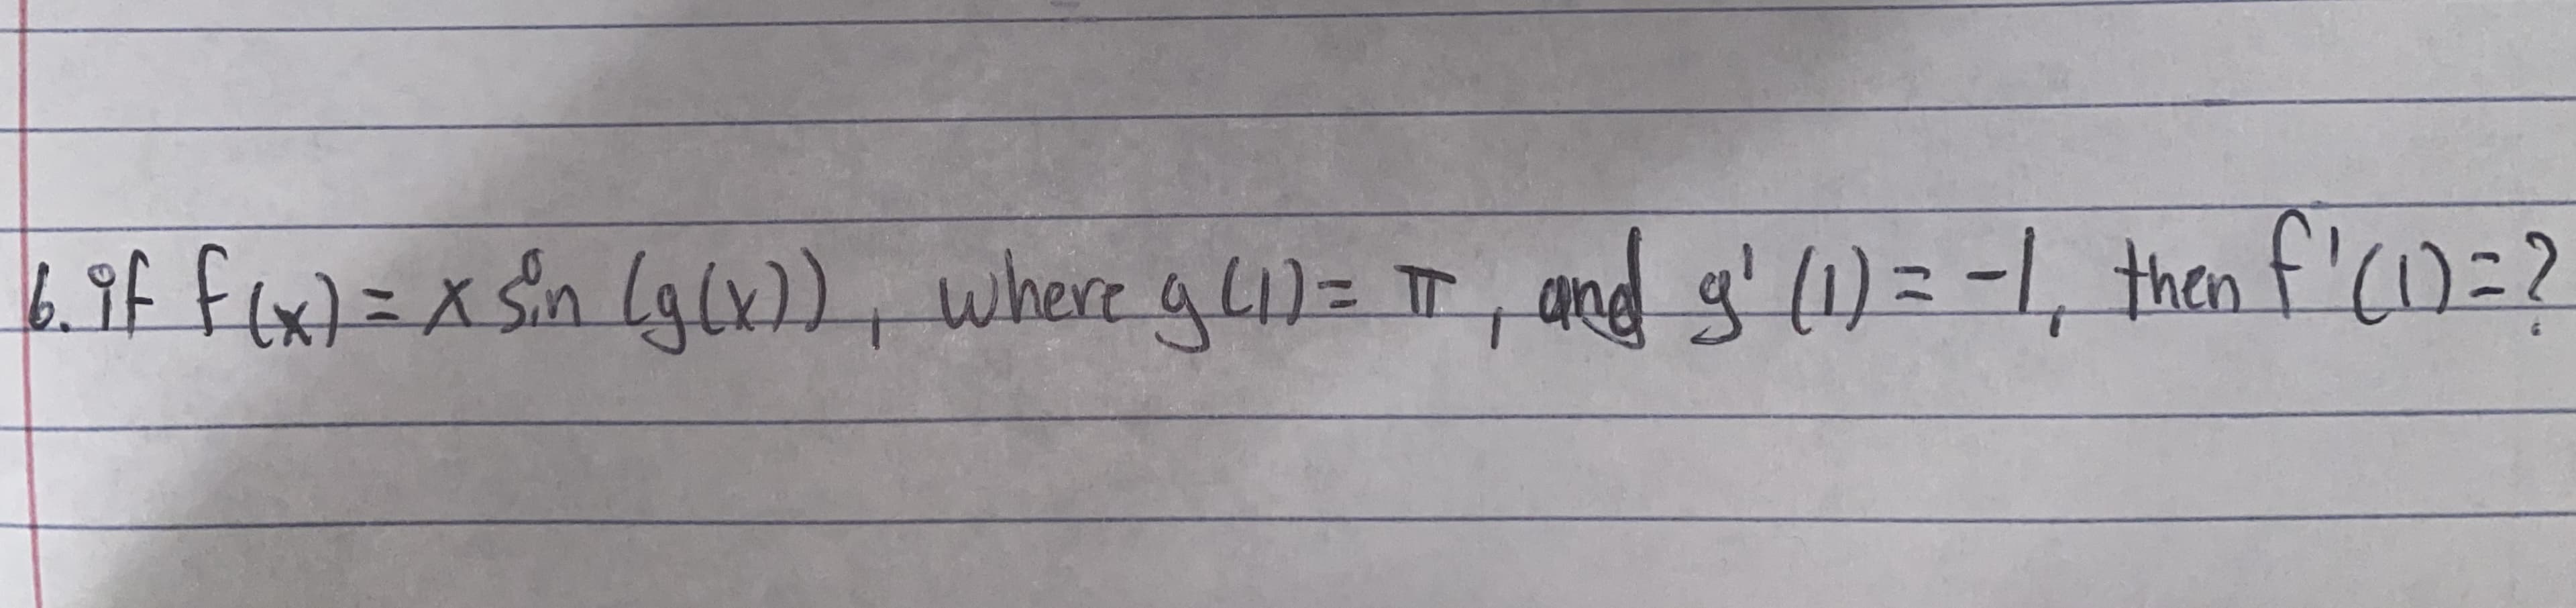 6. if f(x) = x sin (g(x)), where g(1) = π, and g'(1) = -1, then f'(1) = ?